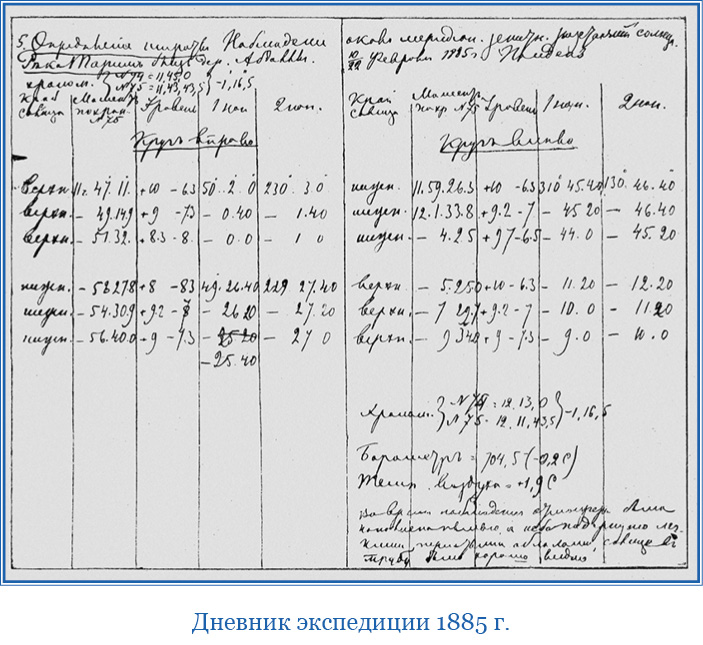 5. Определенiе широты Наблюденiе
Река Таримъ близъ дер. Абдаллы.
хроном. } N 74 = 11,45,0
N 75 = 11,43,43,5 } -1,16,5
Край солнца Моментъ по хрон. N 75 Уровень 1 нон. 2 нон.
Кругъ вправо
верхн. 11ч. 47. 11. +10 -6.3 50. 2. 0 230. 3. 0
верхн. - 49.14,9 +9 -7.3 - 0.40 - 1.40
верхн. - 51.32. +8.3 -8. - 0.0 - 1 0
нижн. - 53 27.8 +8 -8.3 49. 26.40 229 27.40
нижн. - 54.30,9 +9.2 -8 - 26 20 - 27.20
нижн. - 56.40.0 +9 -7.3 - 25 20 - 27 0
- 25.40
около меридiан. зенитн. разстоянiй солнца.
10/22 Февраля 1885 г. Полдень
Край солнца Моментъ по хр. N 75 Уровень 1 нон. 2 нон.
Кругъ влево
нижн. 11.59.26.3 +10 -6.3 310 45.40 130. 46.40
нижн. 12.1.33.8 +9.2 -7 - 45 20 - 46.40
нижн. - 4.2.5 +9.7 -6.5 - 44.0 - 45.20
верхн. - 5.25.0 +10 -6.3 - 11.20 - 12.20
верхн. - 7 29.7 +9.2 -7 - 10.0 - 11 20
верхн. - 9 34.0 +9 -7.3 - 9.0 - 10.0
Хроном. } N 74 = 12.13,0
N 75 = 12.11,43,5 } -1,16,5
Барометръ = 704,5 (-0,2 С)
Темп. воздуха = +1,9 С
Во время наблюденiя
облаками, солнце въ
трубу было хорошо видно
Дневник экспедиции 1885 г.